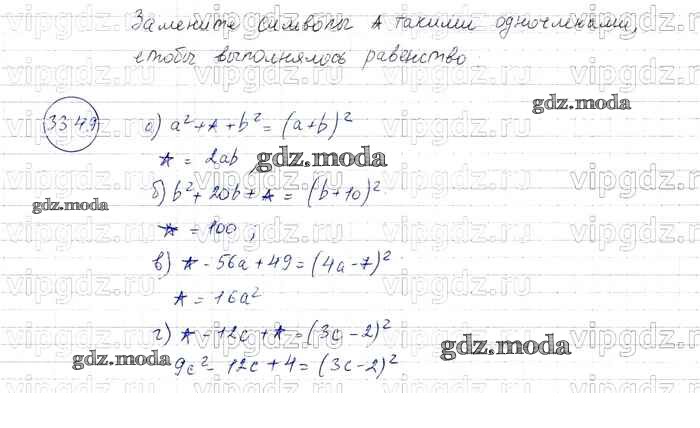 Замените символы ★ такими одночленами,
чтобы выполнялось равенство.
33.49
а) a² + ★ + b² = (a+b)²
★ = 2ab
б) b² + 20b + ★ = (b+10)²
★ = 100;
в) ★ - 56a + 49 = (4a-7)²
★ = 16a²
г) ★ - 12c + ★ = (3c-2)²
9c² - 12c + 4 = (3c-2)²
gdz.moda
gdz.moda
gdz.moda
gdz.moda
gdz.moda
vipgdz vipgdz vipgdz vipgdz